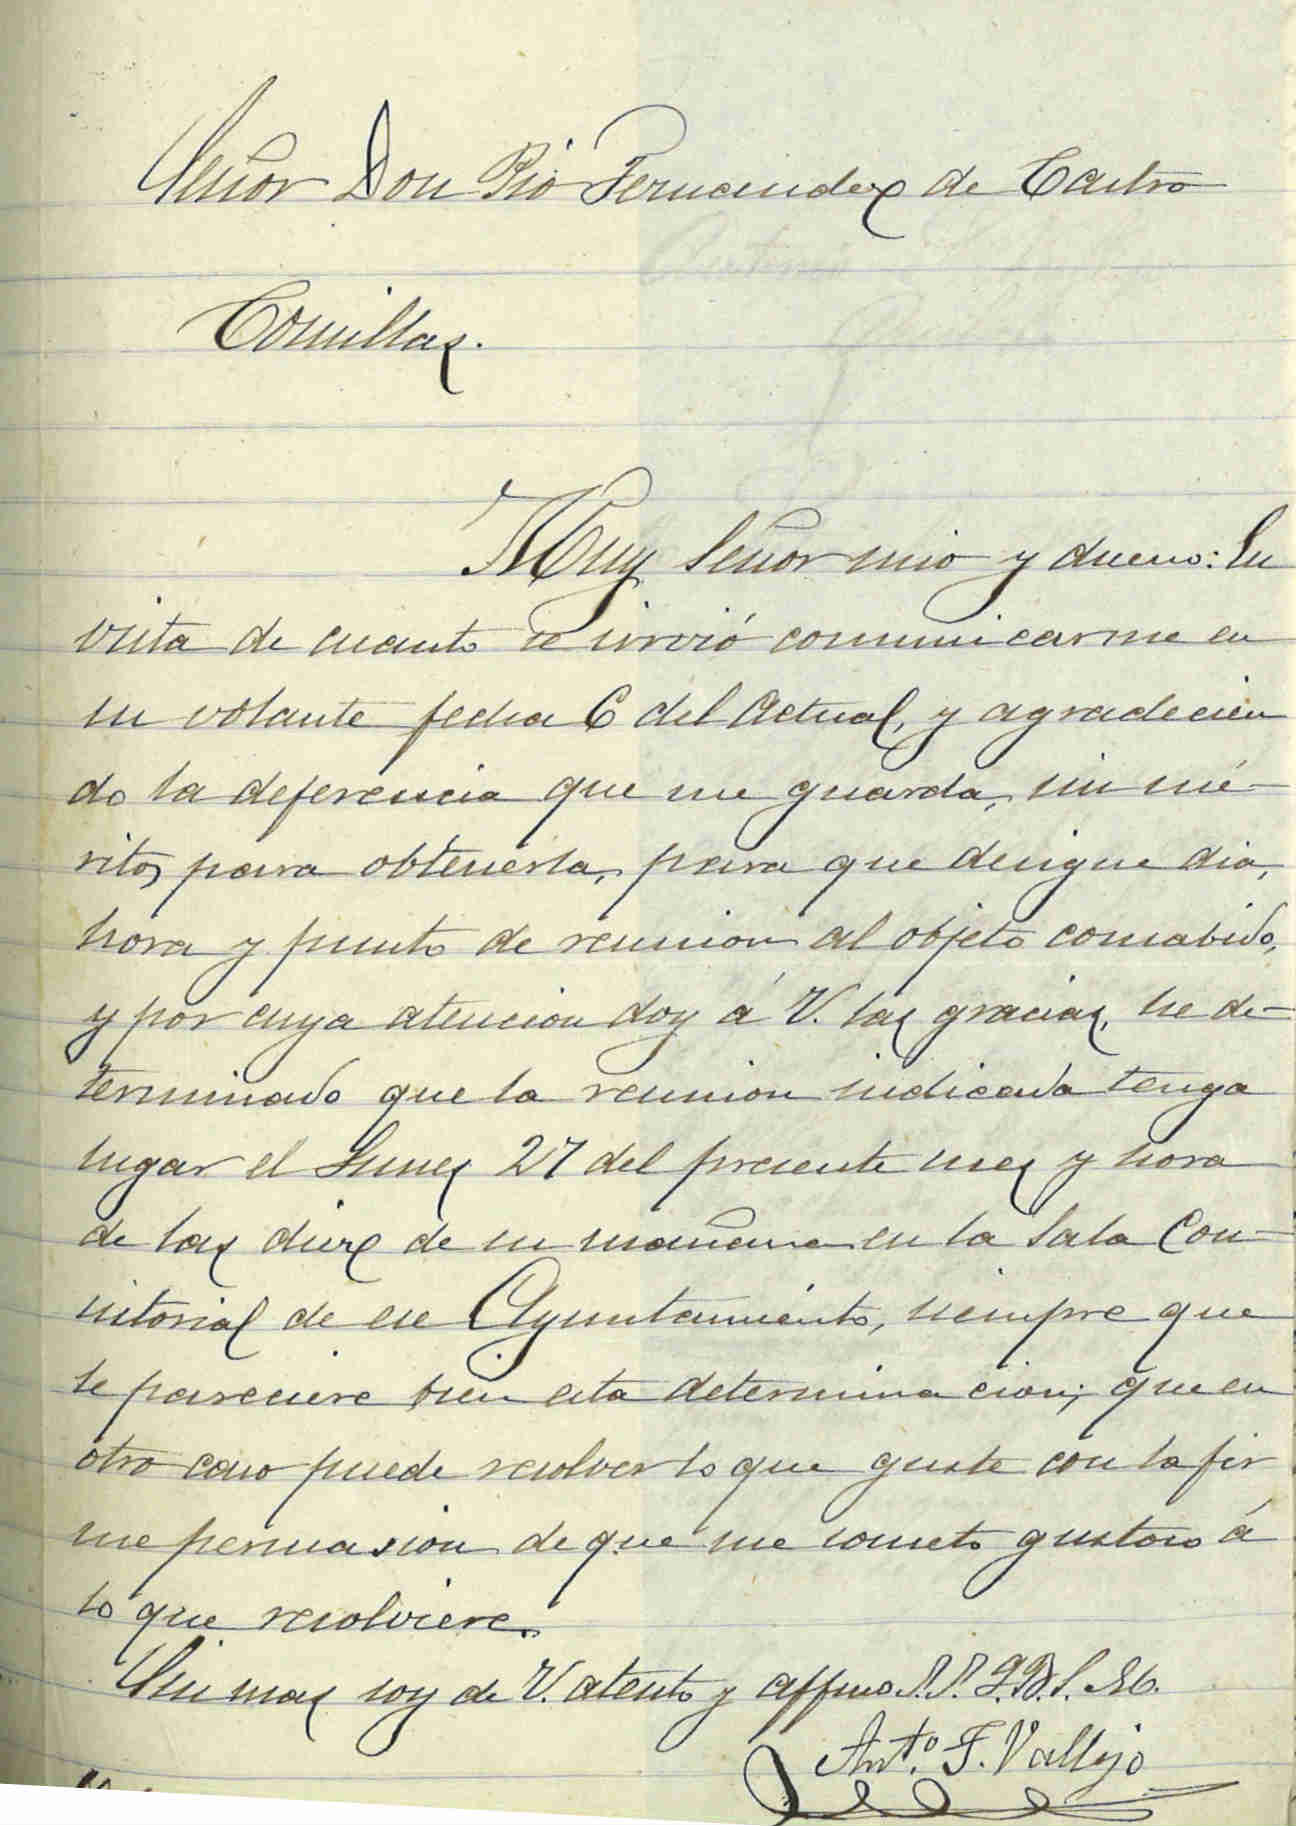 Señor Don Pió Fernandez de Castro
Comillas.
Muy Señor mio y dueño: En
vista de cuanto se sirvió comunicarme en
su volante fecha 6 del Actual, y agradecien
do la deferencia que me guarda, sin mé-
ritos para obtenerla, para que designe dia,
hora y punto de reunion al objeto consabido,
y por cuya atencion doy á V. las gracias, he de-
terminado que la reunion indicada tenga
lugar el Lunes 27 del presente mes y hora
de las diez de su mañana en la Sala Con-
sitorial de ese Ayuntamiento, siempre que
le pareciere bien esta determinacion; que en
otro caso puede resolver lo que guste con la fir
me persuasion de que me someto gustoso á
lo que resolviere.
Sin mas soy de V. atento y affmo S.S. Q.B.S.M.
Ant.º F. Vallejo